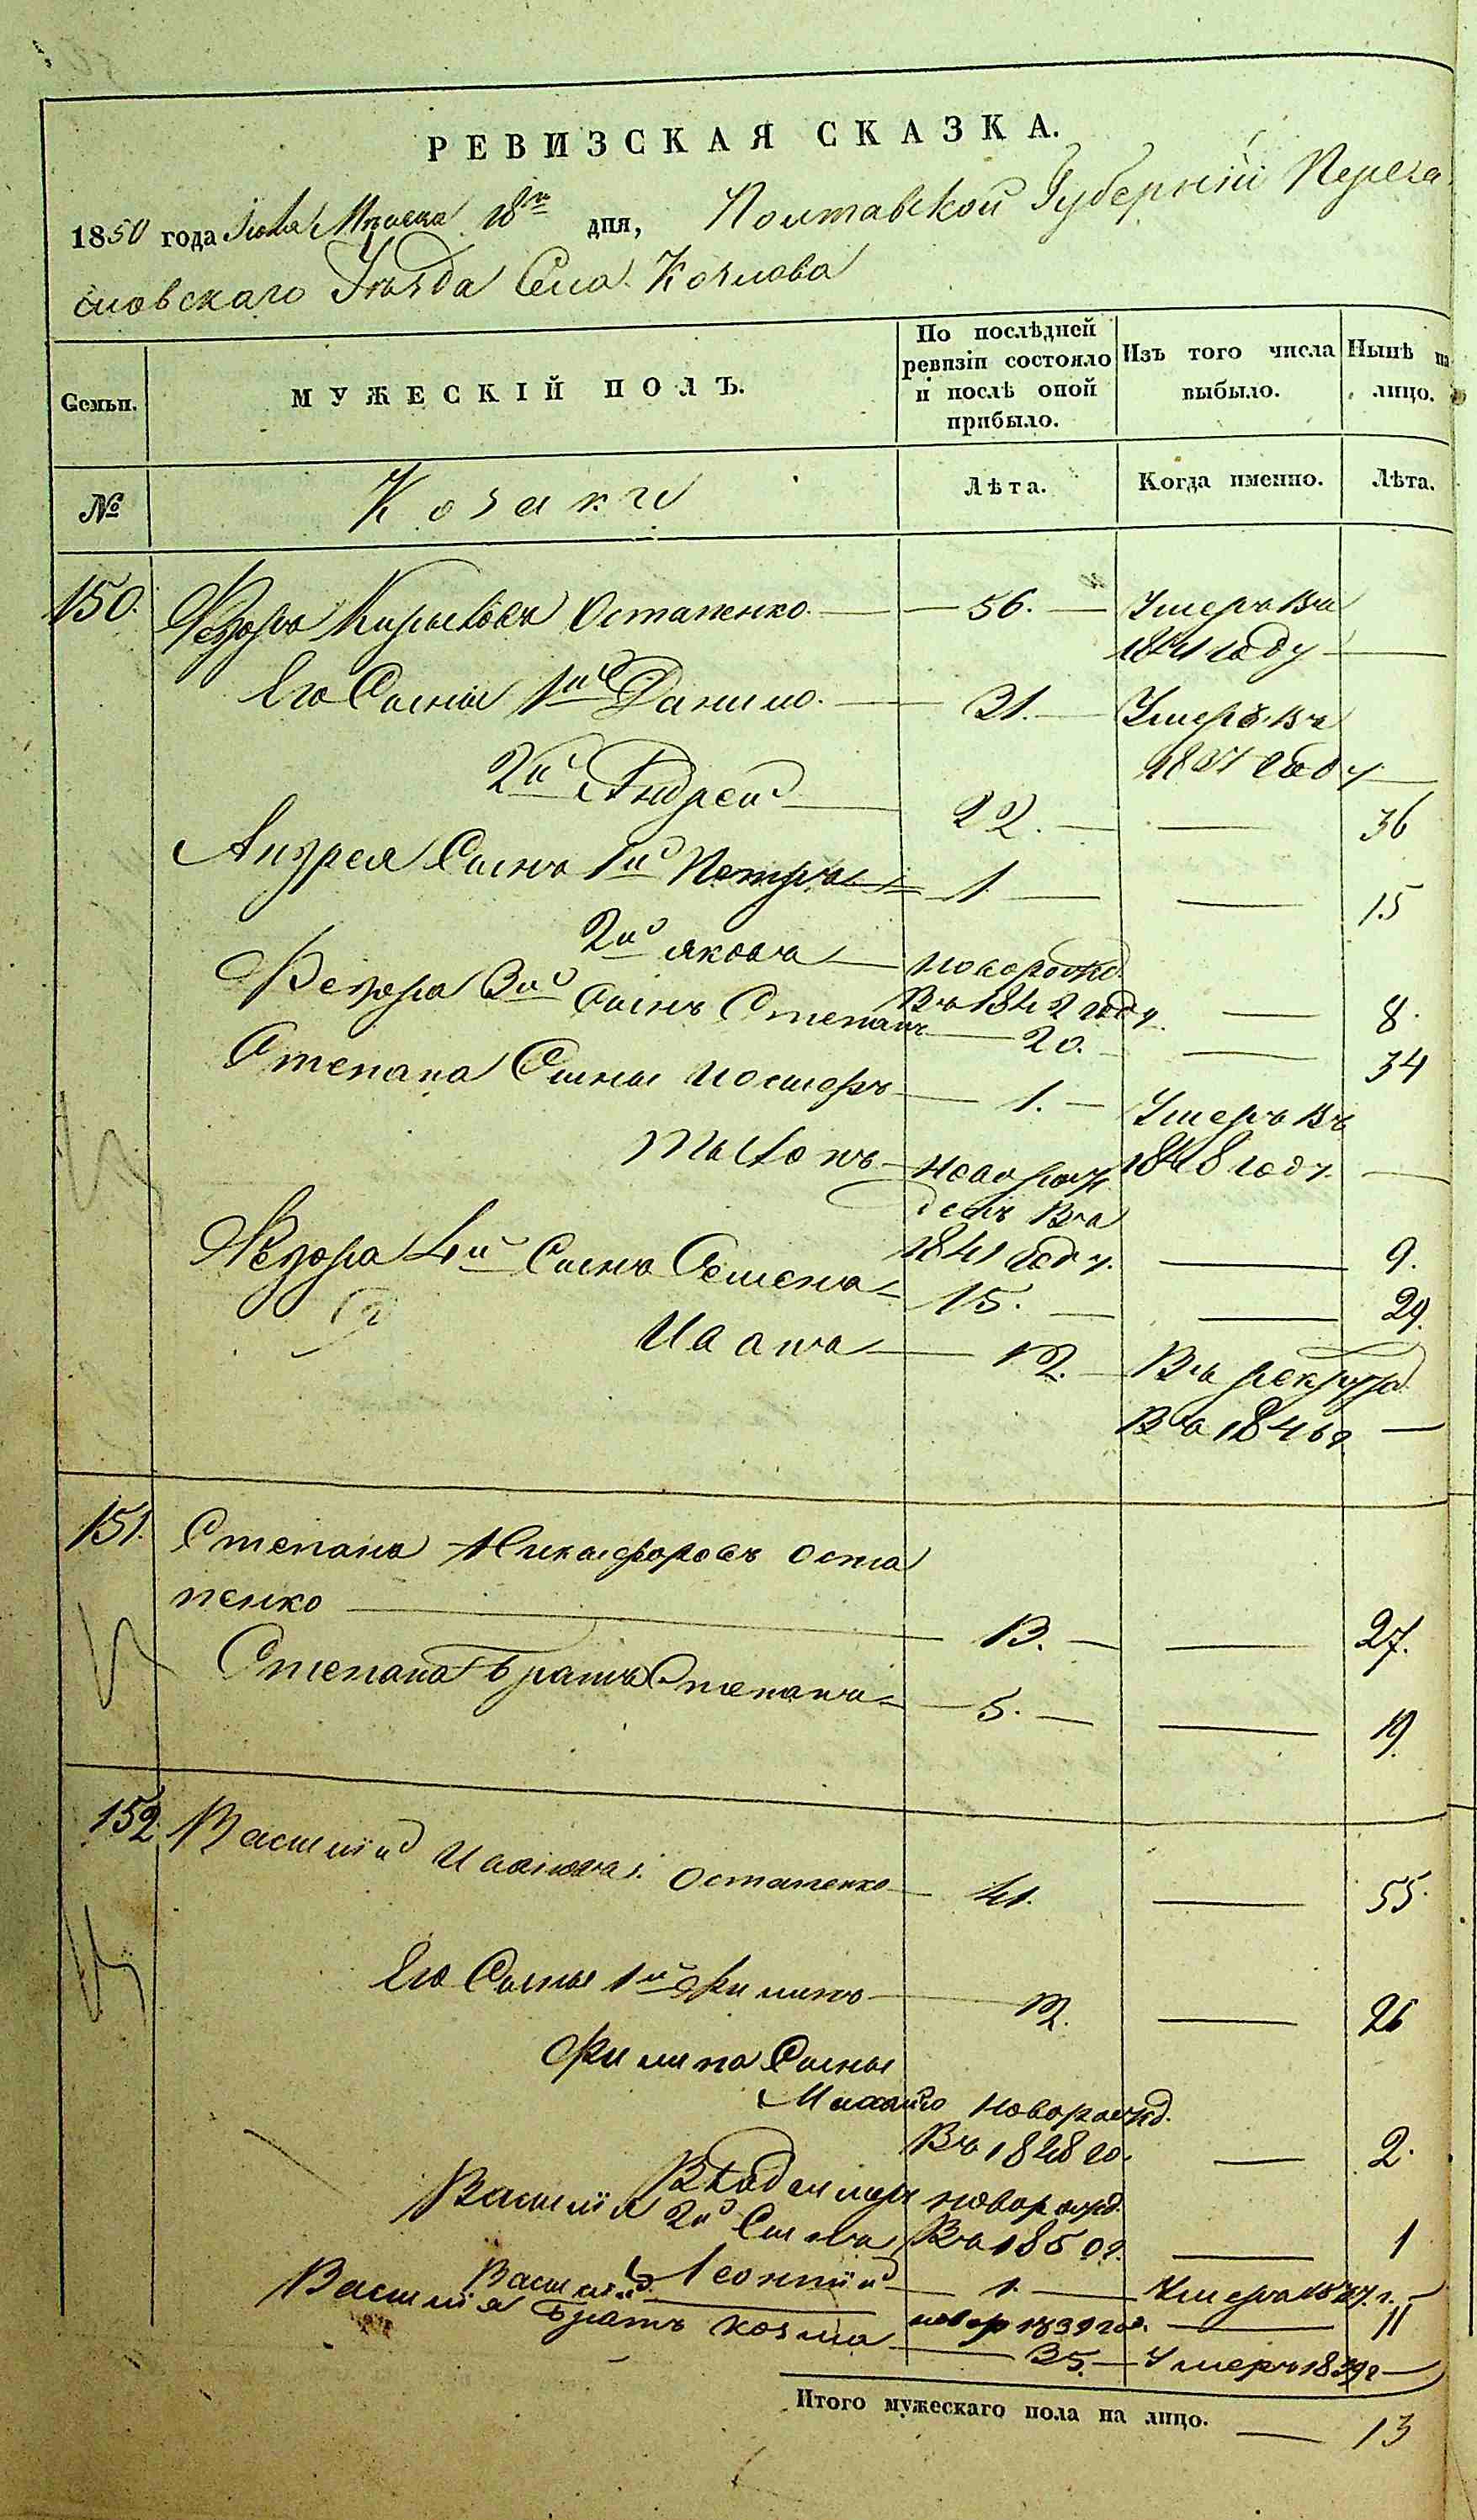 РЕВИЗСКАЯ СКАЗКА.
1850 года Июля Мѣсяца 18го дня, Полтавской Губерніи Перея
словскаго Уѣзда Села Козлова
Семьи. МУЖЕСКІЙ ПОЛЪ. По послѣдней ревизіи состояло и послѣ оной прибыло. Изъ того числа выбыло. Нынѣ на лицо.
№ Козаки Лѣта. Когда именно. Лѣта.
150. Федоръ Кириловъ Остапенко. — 56. — Умеръ въ
1841 году —
Его Сыны 1й Данило. — 31. — Умеръ въ
1837 году —
2й Андрей — 22. — — 36
Андрея Сынъ 1й Петръ — 1 — — 15
2й Яковъ — новорожд.
Въ 1842 году — 8.
Федора 3й Сынъ Степанъ — 20. — 34
Степана Сыны — 1. — Умеръ въ
1848 году. —
новорож
денъ Въ
1841 году. — 9.
Федора 4й Сынъ Семенъ — 15. — — 29.
Иванъ — 12. — Въ рекруты
Въ 1846г. —
151. Степанъ Никифоровъ Оста
пенко — 13. — — 27.
Степана братъ Степанъ — 5. — — 19.
152. Василій Ивановъ Остапенко — 41. — 55.
Его Сыны 1й Филипъ — 12. — 26
Филипа Сыны
Михайло новорожд.
Въ 1848 го. — 2.
Владимиръ новорожд.
Въ 1850г. — 1
Василія 2й Сынъ
Леонтій — 1. — Умеръ 1837.г. —
Василій новор 1839 год. — 11
Василія братъ Козма — 35. — Умеръ 1839г —
Итого мужескаго пола на лицо. — 13